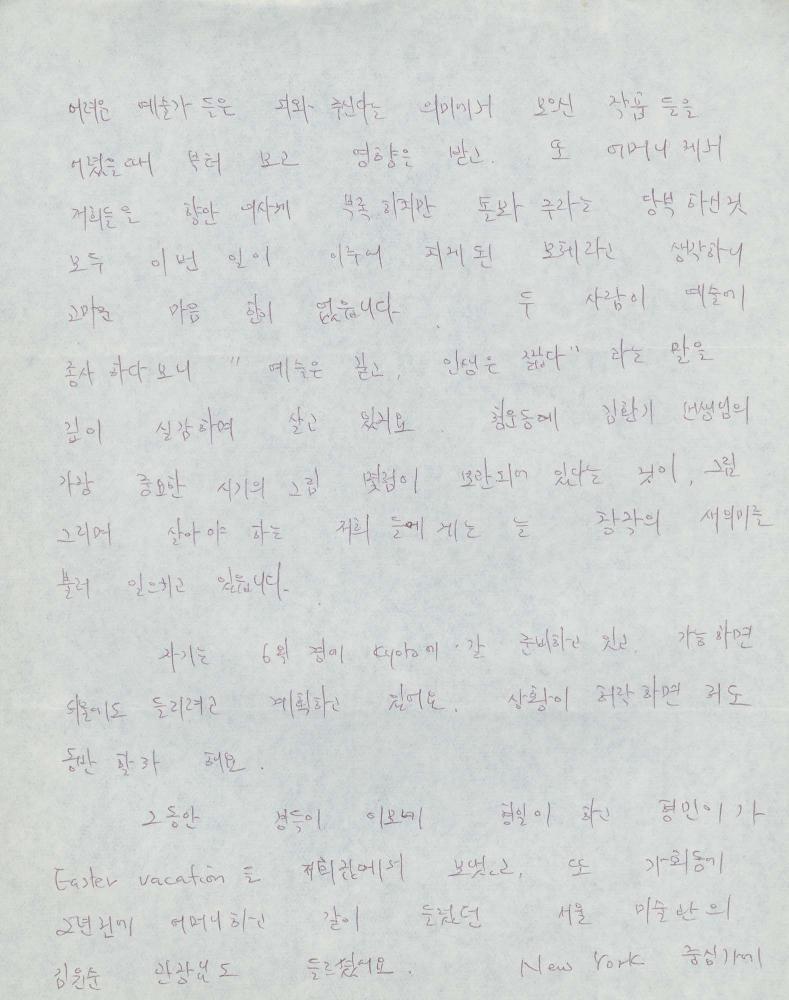 어려운 예술가 들은 도와 주신다는 의미에서 모으신 작품 들을
어렸을때 부터 보고 영향을 받고. 또 어머니 께서
저희들을 항안 여사께 부족 하지만 돌봐 주라는 당부 하신것
모두 이번 일이 이루어 지게 된 모체라고 생각하니
고마운 마음 한이 없읍니다. 두 사람이 예술에
종사 하다 보니 " 예술은 길고, 인생은 짧다" 라는 말을
깊이 실감하며 살고 있지요. 청운동에 김환기 선생님의
가장 중요한 시기의 그림 몇점이 보관되어 있다는 것이, 그림
그리며 살아야 하는 저희 들에게는 늘 감각의 새의미를
불러 일으키고 있읍니다.
자기는 6월 경에 Kyoto에 갈 준비하고 있고. 가능하면
서울에도 들리려고 계획하고 있어요. 상황이 허락하면 저도
동반 할까 해요.
그동안 경득이 이모네 형일이 하고 형민이가
Easter vacation을 저희집에서 보냈고, 또 가회동에
2년전에 어머니하고 같이 들렸던 서울 미술관의
김윤순 관장님도 들르셨어요. New York 중심가에